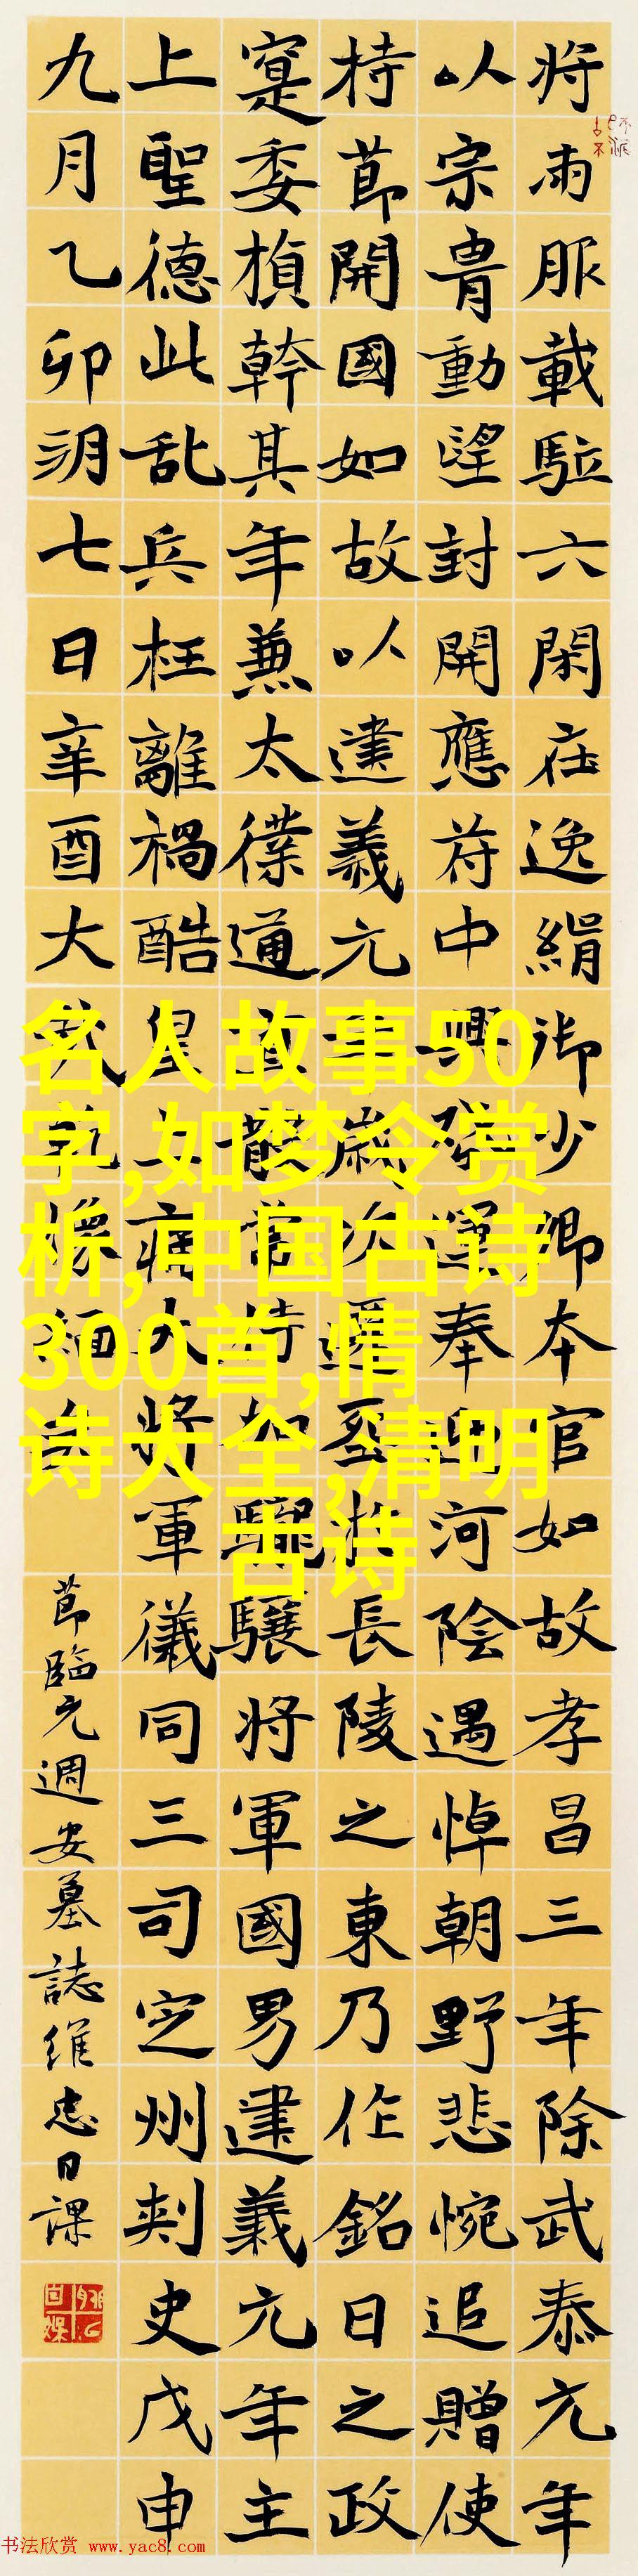 将雨服載駈六閑在逸絹御少卿本官如故孝昌三年除武泰元年
以宗胄動望封開應符中興隆運奉迎河陰遇悼朝野悲惋追贈使
持節開國如故以建義元年歲次遷窆將長陵之東乃作銘曰之政
寔委楨幹其年兼太僕通直散常侍加驪驤将軍國男建義元年主
上聖德此乱兵枉離禍酷皇上痛大將軍儀同三司定州刾史戊申
九月乙卯朔七日辛酉大
節臨元週安墓誌維忠日課
名人故事50
字,如梦令赏
析,中国古诗
300首,情
诗大全,清明
古诗
书法欣赏 www.yac8.com